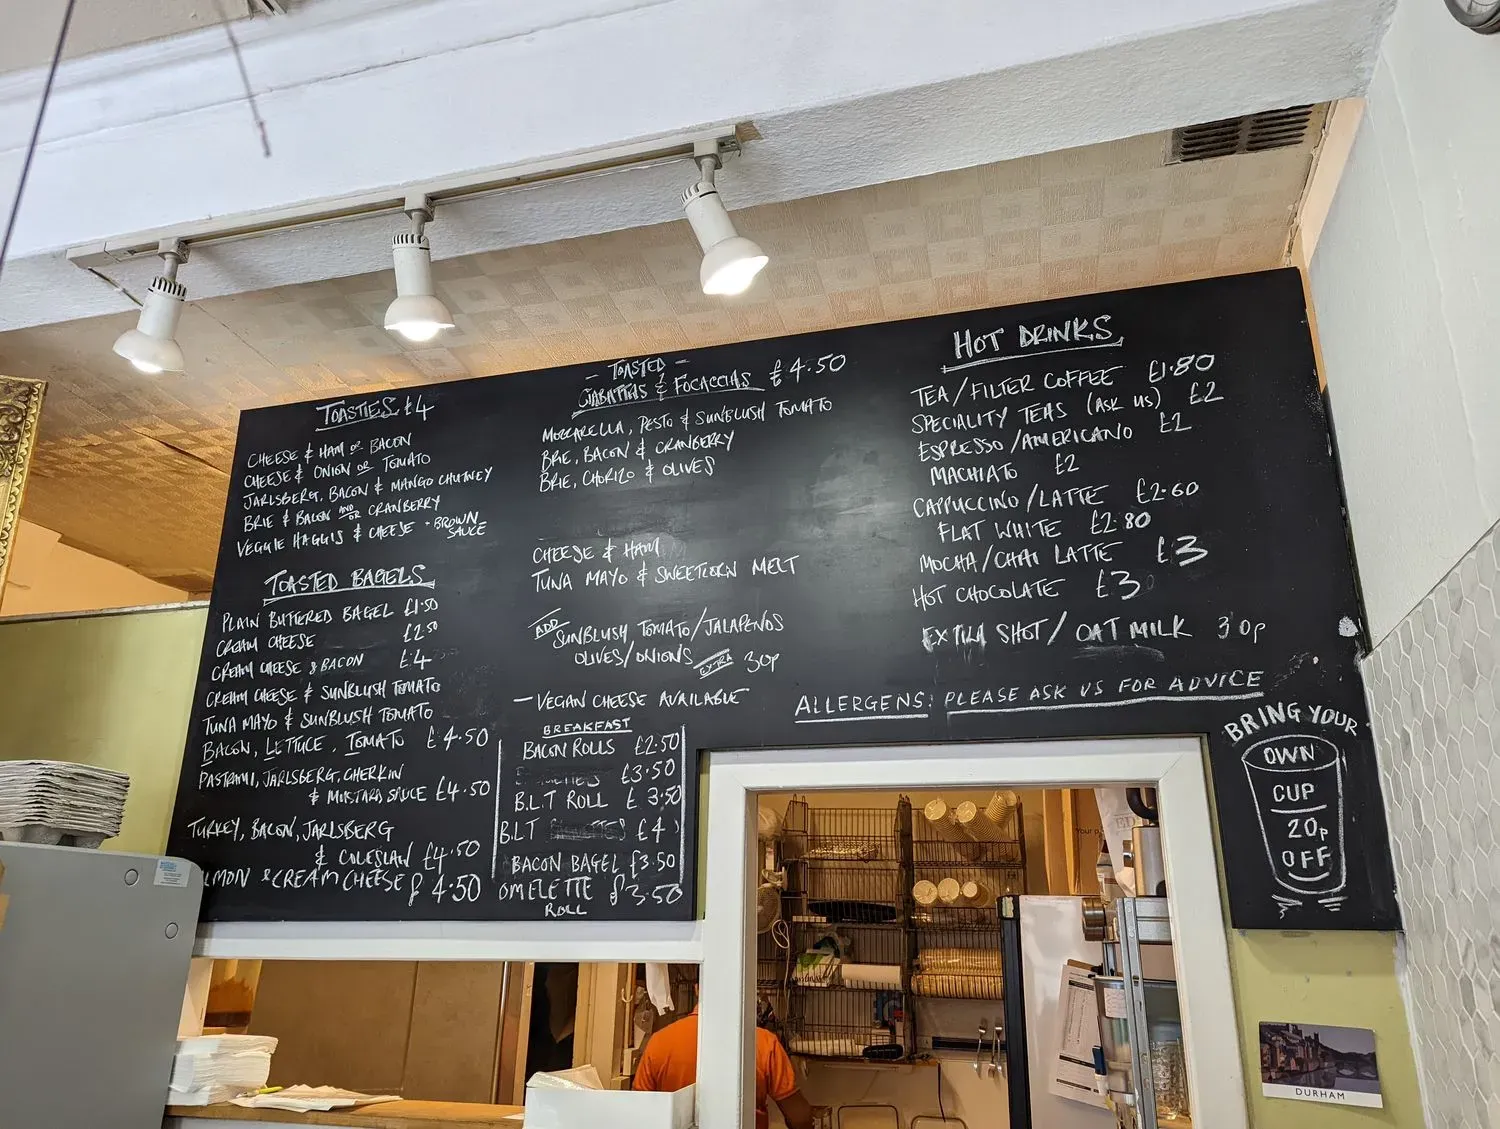 TOASTIES £4
CHEESE & HAM OR BACON
CHEESE & ONION OR TOMATO
JARLSBERG, BACON & MANGO CHUTNEY
BRIE & BACON AND OR CRANBERRY
VEGGIE HAGGIS & CHEESE + BROWN SAUCE
TOASTED BAGELS
PLAIN BUTTERED BAGEL £1.50
CREAM CHEESE £2.50
CREAM CHEESE & BACON £4
CREAM CHEESE & SUNBLUSH TOMATO
TUNA MAYO & SUNBLUSH TOMATO
BACON, LETTUCE, TOMATO £4.50
PASTRAMI, JARLSBERG, GHERKIN
& MUSTARD SAUCE £4.50
TURKEY, BACON, JARLSBERG
& COLESLAW £4.50
LMON & CREAM CHEESE £4.50
- TOASTED -
CIABATTAS & FOCACCIAS £4.50
MOZZARELLA, PESTO & SUNBLUSH TOMATO
BRIE, BACON & CRANBERRY
BRIE, CHORIZO & OLIVES
CHEESE & HAM
TUNA MAYO & SWEETCORN MELT
ADD
SUNBLUSH TOMATO/JALAPENOS
OLIVES/ONIONS EXTRA 30p
- VEGAN CHEESE AVAILABLE
BREAKFAST
BACON ROLLS £2.50
£3.50
B.L.T ROLL £3.50
B.L.T £4
BACON BAGEL £3.50
OMELETTE £3.50
ROLL
HOT DRINKS
TEA/FILTER COFFEE £1.80
SPECIALITY TEAS (ASK US) £2
ESPRESSO/AMERICANO £2
MACHIATO £2
CAPPUCCINO/LATTE £2.60
FLAT WHITE £2.80
MOCHA/CHAI LATTE £3
HOT CHOCOLATE £3
EXTRA SHOT/OAT MILK 30p
ALLERGENS: PLEASE ASK US FOR ADVICE
BRING YOUR
OWN
CUP
20p
OFF
DURHAM